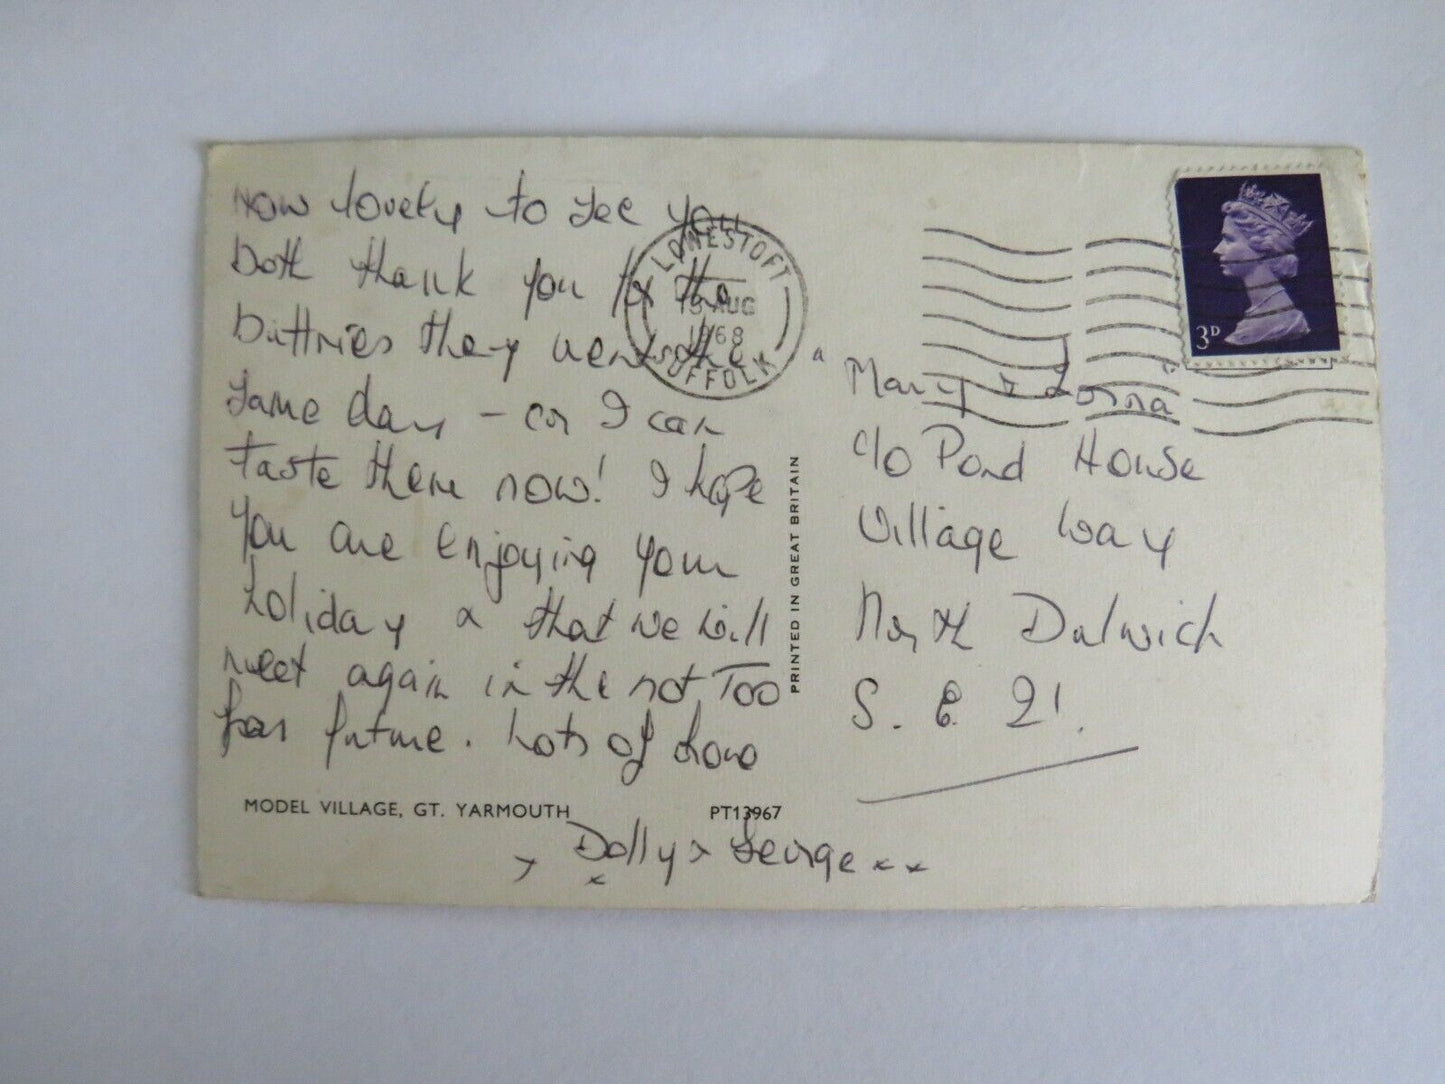 How lovely to see you
both thank you for the
buttries they went the
same day - cor I can
taste them now! I hope
you are enjoying your
holiday & that we will
meet again in the not Too
far future. Lots of Love
Dolly & George x x
x x
MODEL VILLAGE, GT. YARMOUTH
PT13967
PRINTED IN GREAT BRITAIN
LOWESTOFT
AUG
1968
SUFFOLK
3D
"Mary & Lorna"
c/o Pond House
Village Way
North Dulwich
S. E. 21.